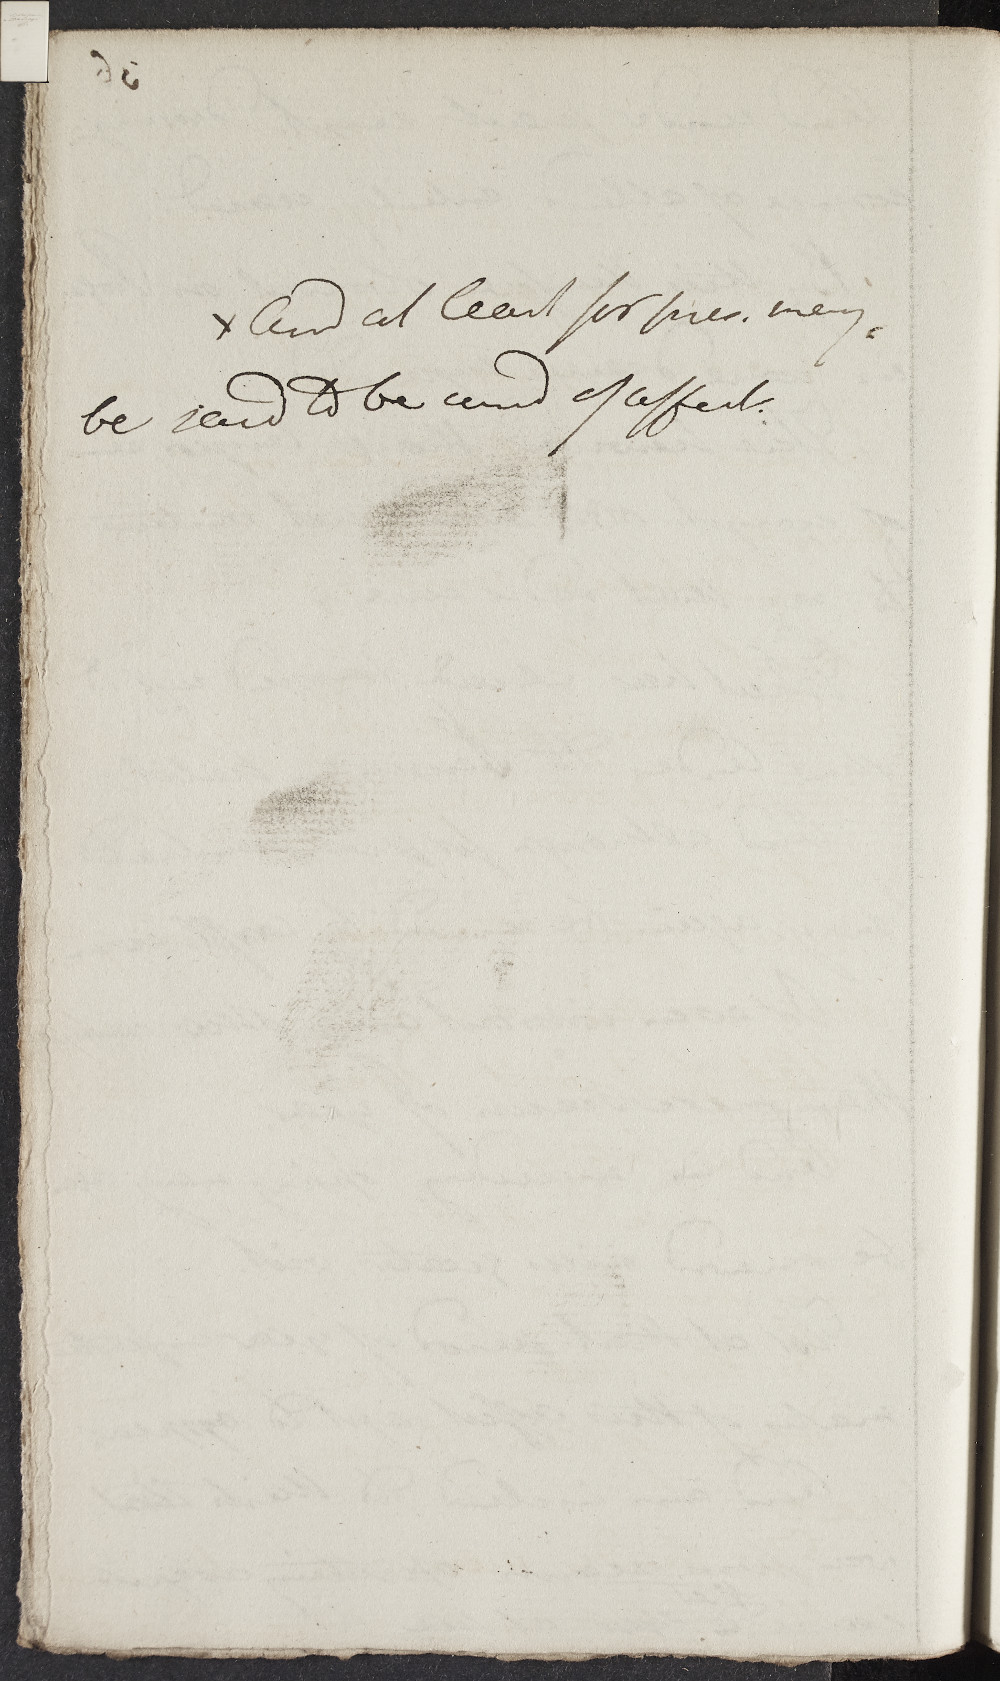 x And at least for pres. may
be said to be cured of affect.